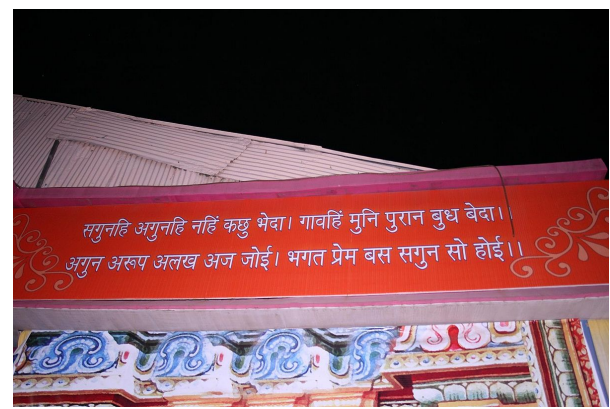 सगुनहि अगुनहि नहिं कछु भेदा। गावहिं मुनि पुरान बुध बेदा।।
अगुन अरूप अलख अज जोई। भगत प्रेम बस सगुन सो होई।।